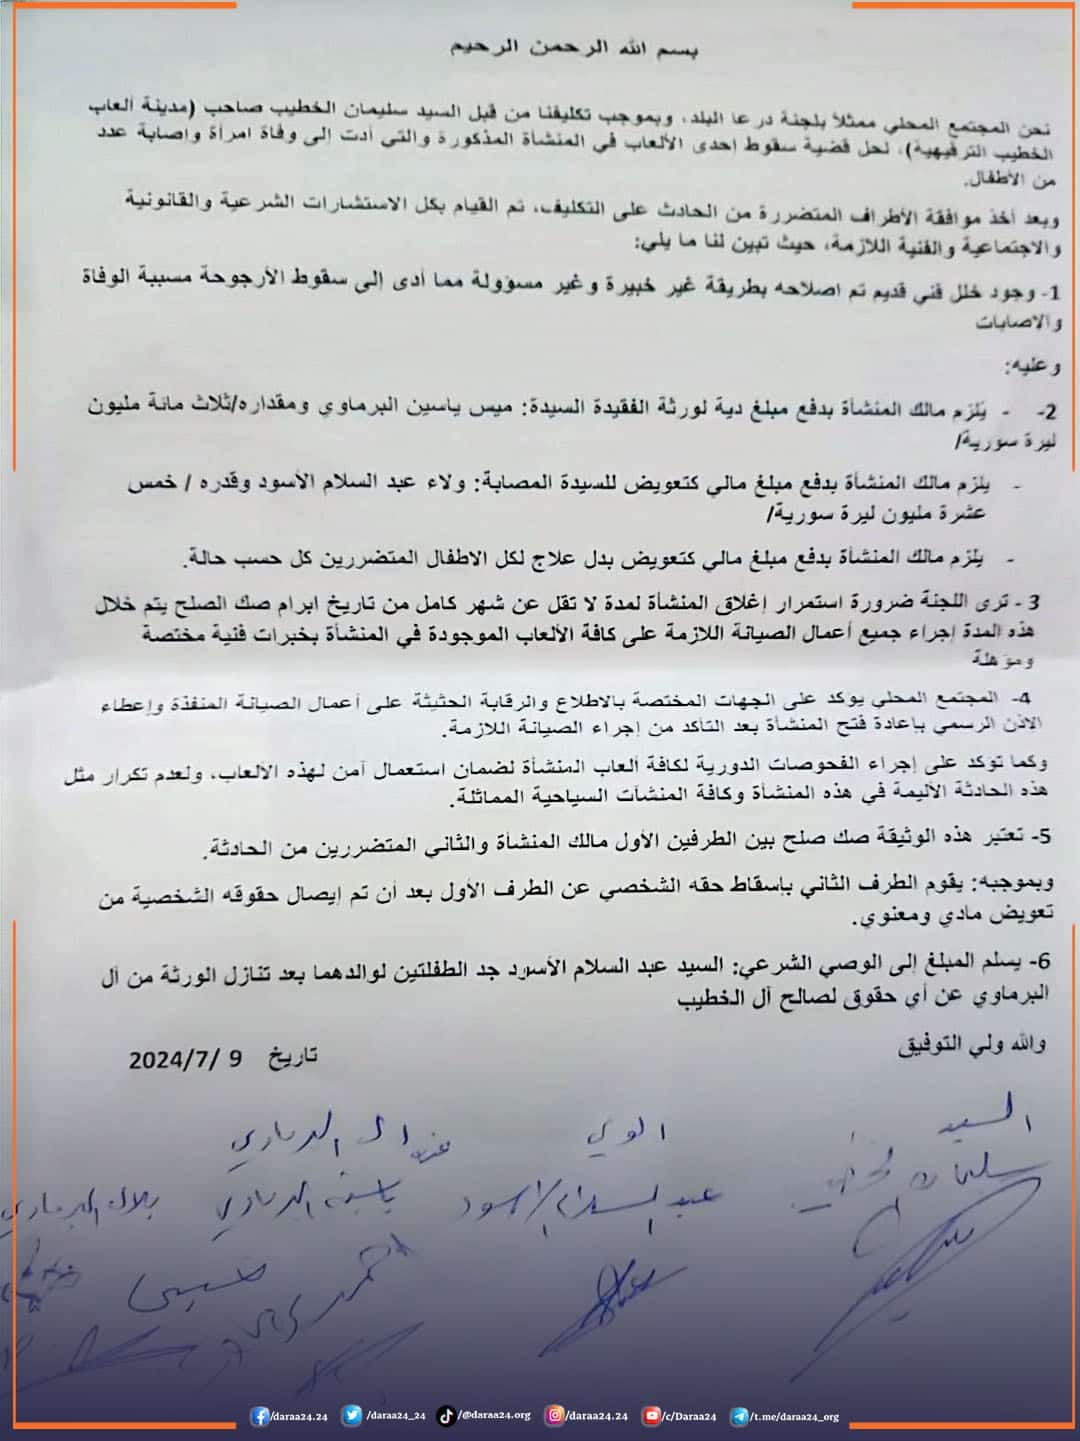 بسم الله الرحمن الرحيم
نحن المجتمع المحلي ممثلاً بلجنة درعا البلد، وبموجب تكليفنا من قبل السيد سليمان الخطيب صاحب (مدينة ألعاب
الخطيب الترفيهية)، لحل قضية سقوط إحدى الألعاب في المنشأة المذكورة والتي أدت إلى وفاة امرأة وإصابة عدد
من الأطفال.
وبعد أخذ موافقة الأطراف المتضررة من الحادث على التكليف، تم القيام بكل الاستشارات الشرعية والقانونية
والاجتماعية والفنية اللازمة، حيث تبين لنا ما يلي:
1- وجود خلل فني قديم تم اصلاحه بطريقة غير خبيرة وغير مسؤولة مما أدى إلى سقوط الأرجوحة مسببة الوفاة
والاصابات
وعليه:
2- - يُلزم مالك المنشأة بدفع مبلغ دية لورثة الفقيدة السيدة: ميس ياسين البرماوي ومقداره/ثلاث مائة مليون
ليرة سورية/
- يلزم مالك المنشأة بدفع مبلغ مالي كتعويض للسيدة المصابة: ولاء عبد السلام الأسود وقدره / خمس
عشرة مليون ليرة سورية/
- يلزم مالك المنشأة بدفع مبلغ مالي كتعويض بدل علاج لكل الاطفال المتضررين كل حسب حالة.
3- ترى اللجنة ضرورة استمرار إغلاق المنشأة لمدة لا تقل عن شهر كامل من تاريخ ابرام صك الصلح يتم خلال
هذه المدة إجراء جميع أعمال الصيانة اللازمة على كافة الألعاب الموجودة في المنشأة بخبرات فنية مختصة
ومؤهلة
4- المجتمع المحلي يؤكد على الجهات المختصة بالاطلاع والرقابة الحثيثة على أعمال الصيانة المنفذة وإعطاء
الاذن الرسمي بإعادة فتح المنشأة بعد التأكد من إجراء الصيانة اللازمة.
وكما تؤكد على إجراء الفحوصات الدورية لكافة ألعاب المنشأة لضمان استعمال آمن لهذه الألعاب، ولعدم تكرار مثل
هذه الحادثة الأليمة في هذه المنشأة وكافة المنشآت السياحية المماثلة.
5- تعتبر هذه الوثيقة صك صلح بين الطرفين الأول مالك المنشأة والثاني المتضررين من الحادثة.
وبموجبه: يقوم الطرف الثاني بإسقاط حقه الشخصي عن الطرف الأول بعد أن تم إيصال حقوقه الشخصية من
تعويض مادي ومعنوي.
6- يسلم المبلغ إلى الوصي الشرعي: السيد عبد السلام الأسود جد الطفلتين لوالدهما بعد تنازل الورثة من آل
البرماوي عن أي حقوق لصالح آل الخطيب
والله ولي التوفيق
تاريخ 9 /2024/7
السيد
سليمان
عبد السلام الاسود
ياسين البرماوي
بلال البرماوي
/daraa24.24 /daraa24_24 /@daraa24.org /daraa24.24 /c/Daraa24 /t.me/daraa24_org